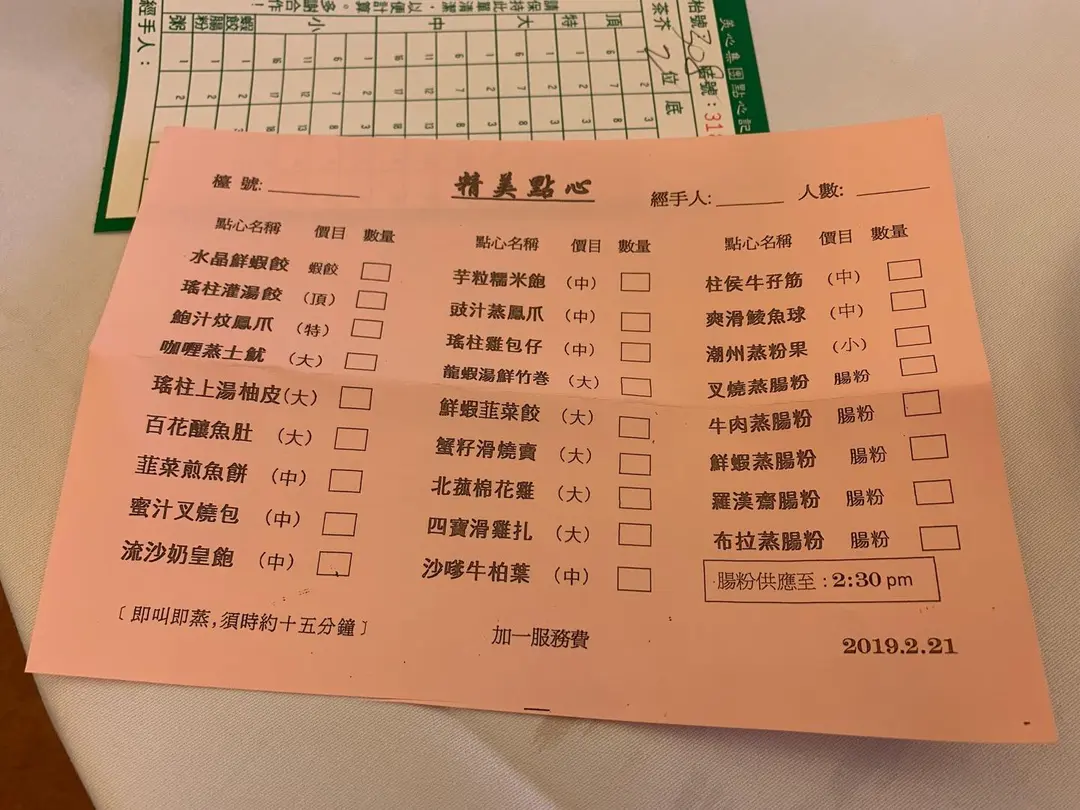 檯號:
精美點心
經手人:
人數:
點心名稱 價目 數量
水晶鮮蝦餃 蝦餃
瑤柱灌湯餃 (頂)
鮑汁炆鳳爪 (特)
咖喱蒸土魷 (大)
瑤柱上湯柚皮(大)
百花釀魚肚 (大)
韮菜煎魚餅 (中)
蜜汁叉燒包 (中)
流沙奶皇飽 (中)
〔即叫即蒸,須時約十五分鐘〕
點心名稱 價目 數量
芋粒糯米飽 (中)
豉汁蒸鳳爪 (中)
瑤柱雞包仔 (中)
龍蝦湯鮮竹卷 (大)
鮮蝦韮菜餃 (大)
蟹籽滑燒賣 (大)
北菰棉花雞 (大)
四寶滑雞扎 (大)
沙嗲牛柏葉 (中)
加一服務費
點心名稱 價目 數量
柱侯牛孖筋 (中)
爽滑鯪魚球 (中)
潮州蒸粉果 (小)
叉燒蒸腸粉 腸粉
牛肉蒸腸粉 腸粉
鮮蝦蒸腸粉 腸粉
羅漢齋腸粉 腸粉
布拉蒸腸粉 腸粉
腸粉供應至:2:30 pm
2019.2.21
茶芥 2 位
底
頂
特
大
中
小
蝦餃
腸粉
粥
經手人: